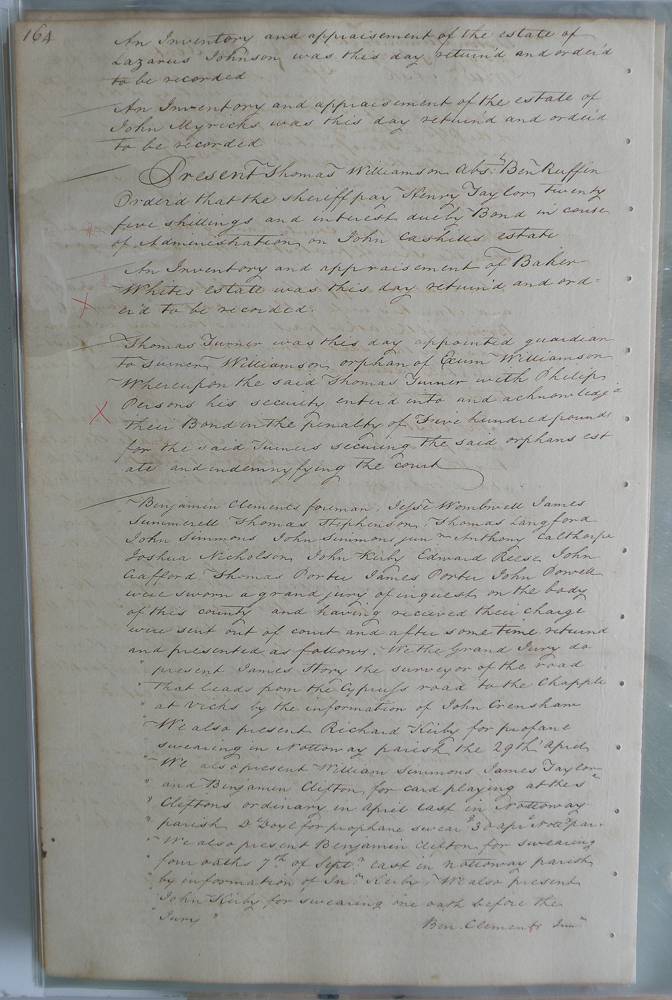 164
An Inventory and appraisement of the estate of
Lazarus Johnson was this day return'd and order'd
to be recorded
An Inventory and appraisement of the estate of
John Myricks was this day return'd and order'd
to be recorded
Present Thomas Williamson Abst. Ben Ruffin
Order'd that the sheriff pay Henry Taylor twenty
five shillings and interest due by Bond in course
of Administration on John Cashills estate
An Inventory and appraisement of Baker
Whites estate was this day return'd and ord-
er'd to be recorded.
Thomas Turner was this day appointed guardian
to Turner Williamson orphan of Exum Williamson
Whereupon the said Thomas Turner with Philip
Persons his security enter'd into and acknowledg'd
their Bond in the penalty of Five hundred pounds
for the said Turners securing the said orphans est
ate and indemnyfying the court
Benjamin Clements foreman, Jesse Wombwell James
Summerell Thomas Stephenson, Thomas Langford
John Simmons John Simmons junr Anthony Calthorpe
Joshua Nicholson John Kirby Edward Reese John
Crafford Thomas Porter James Porter John Powell
were sworn a grand jury of inquest on the body
of this county and having recieved their charge
were sent out of court and after some time returnd
and presented as follows. We the Grand Jury do
" present James Story the surveyor of the road
" that leads from the Cypruss road to the Chapple
" at Vicks by the information of John Crensham
" We also present Richard Kirby for profane
swearing in Nottoway parish the 29th April
" We also present William Simmons James Taylor
" and Benjamin Clifton for card playing at the s
" Cliftons ordinary in April last in Nottoway
" parish Dr Doyl for prophane swear'g 30 apr Nottoy par.
" We also present Benjamin Clifton for swearing
" four oaths 7th of Septr last in nottoway parish
" by information of Jnn Kirby. We also present
" John Kirby for swearing one oath before the
" Jury "
Ben. Clements Junr